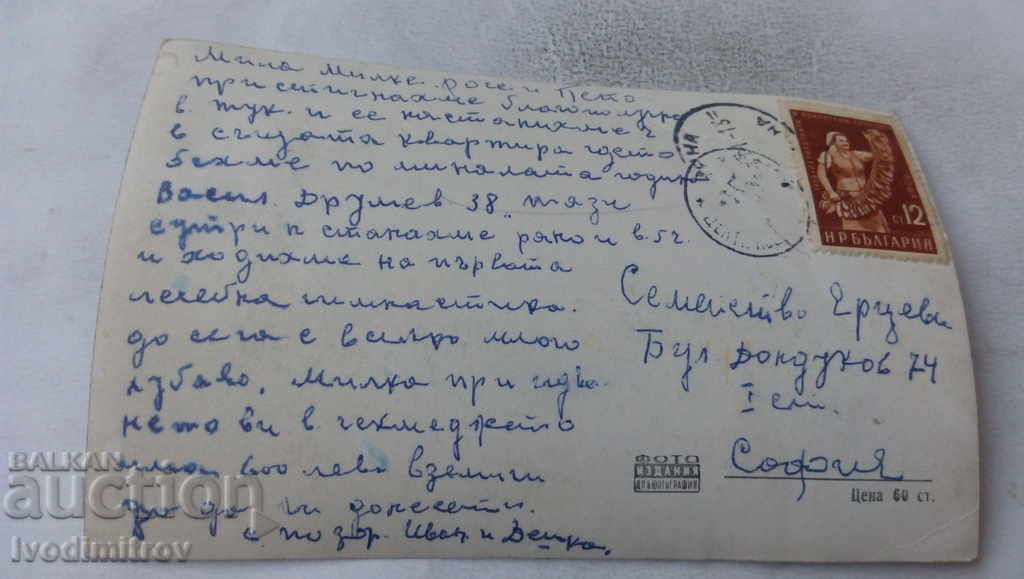 Мила Милке. роси и Пето
пристигнахме благополучно
в. тук. и се настанихме
в същата квартира гдето
бехме по миналата година
Васил. Друмев 38 " тази
сутрин станахме рано и в. 5 ч.
и ходихме на първата
лечебна гимнастика.
до сега е всичко много
хубаво. Милка при идва
нето ви в. чекмеджето
има 600 лева вземи ги
да ги донесеш.
с поздр. Иван и Вешка.
ст. 12
Н Р БЪЛГАРИЯ
Семейство Ерцеви
Бул Дондуков 74
I ет.
София
ФОТО
ИЗДАНИЯ
ДП БЮТОГРАФИЯ
Цена 60 ст.
BALKAN
auction
Ivodimitrov